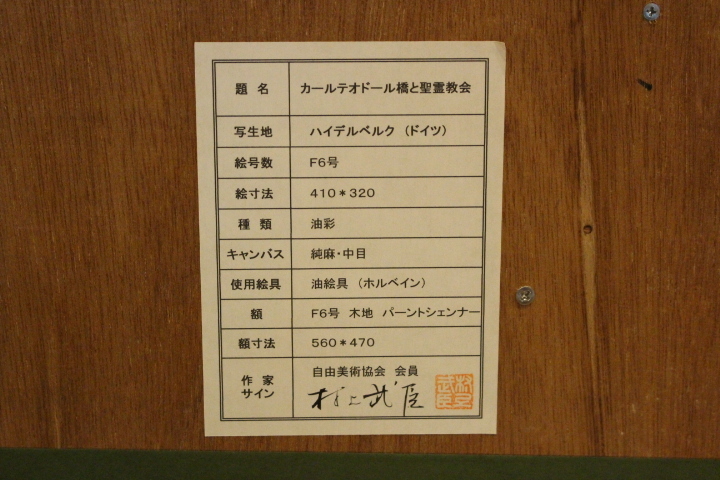 題 名 カールテオドール橋と聖霊教会
写生地 ハイデルベルク (ドイツ)
絵号数 F6号
絵寸法 410*320
種 類 油彩
キャンバス 純麻・中目
使用絵具 油絵具 (ホルベイン)
額 F6号 木地 バーントシェンナー
額寸法 560*470
作 家
サイン
自由美術協会 会員
村上武臣